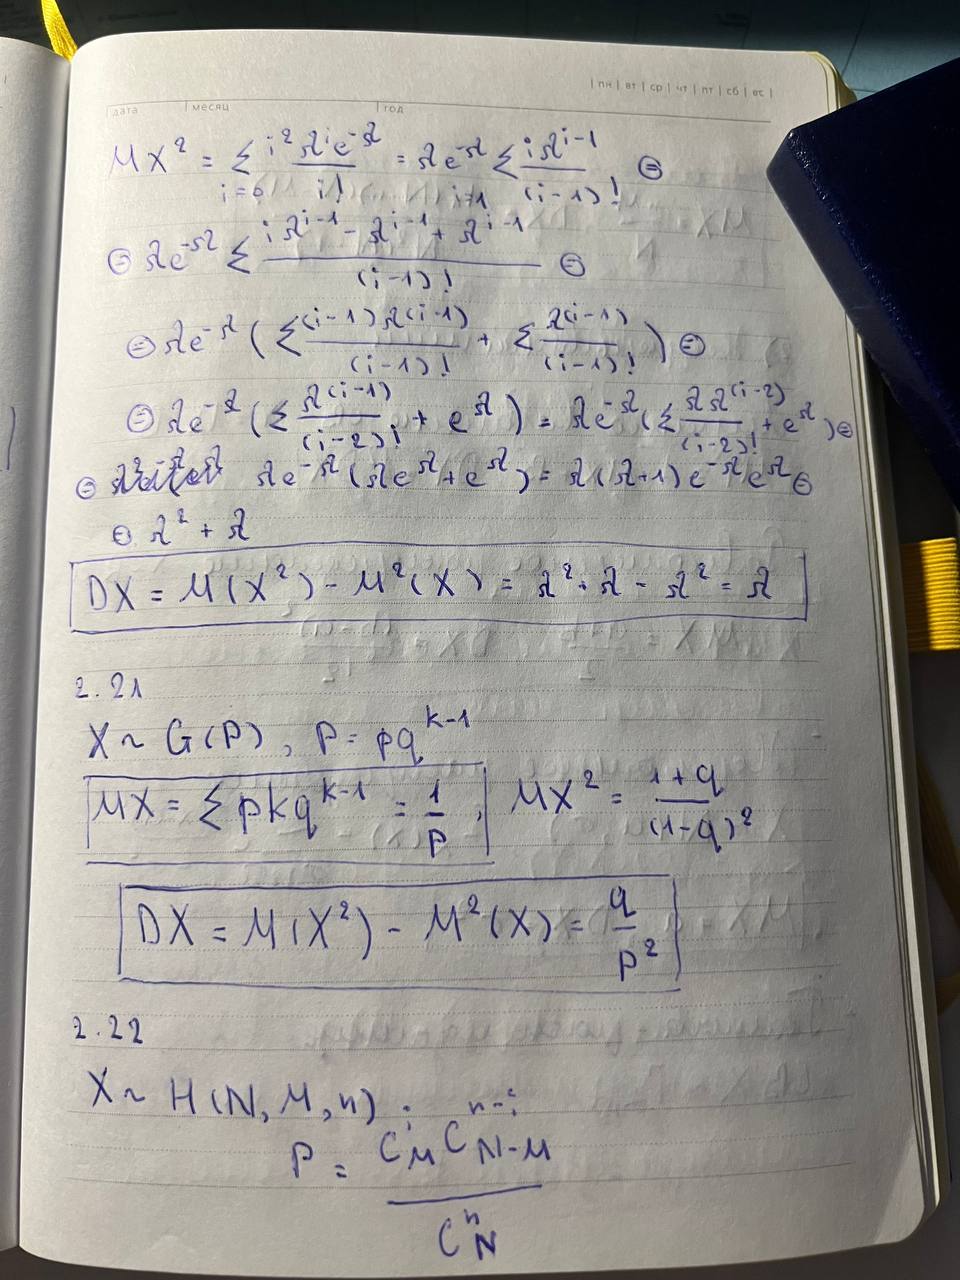 | пн | вт | ср | чт | пт | сб | вс |
дата | месяц | год
MX² = Σ_{i=0} i² λ^i e^{-λ} / i! = λe^{-λ} Σ_{i=1} iλ^{i-1} / (i-1)! ⊜
⊜ λe^{-λ} Σ (iλ^{i-1} - λ^{i-1} + λ^{i-1}) / (i-1)! ⊜
⊜ λe^{-λ} (Σ (i-1)λ^{(i-1)} / (i-1)! + Σ λ^{(i-1)} / (i-1)!) ⊜
⊜ λe^{-λ} (Σ λ^{(i-1)} / (i-2)! + e^λ) = λe^{-λ} (Σ λλ^{(i-2)} / (i-2)! + e^λ) ⊜
⊜ λe^{-λ} (λe^λ + e^λ) = λ(λ+1) e^{-λ}e^λ ⊜
⊜ λ² + λ
DX = M(X²) - M²(X) = λ² + λ - λ² = λ
2.21
X ~ G(P), P = pq^{k-1}
MX = Σ pkq^{k-1} = 1/p; MX² = (1+q) / (1-q)²
DX = M(X²) - M²(X) = q/p²
2.22
X ~ H(N, M, n)
P = C_M^i C_{N-M}^{n-i} / C_N^n